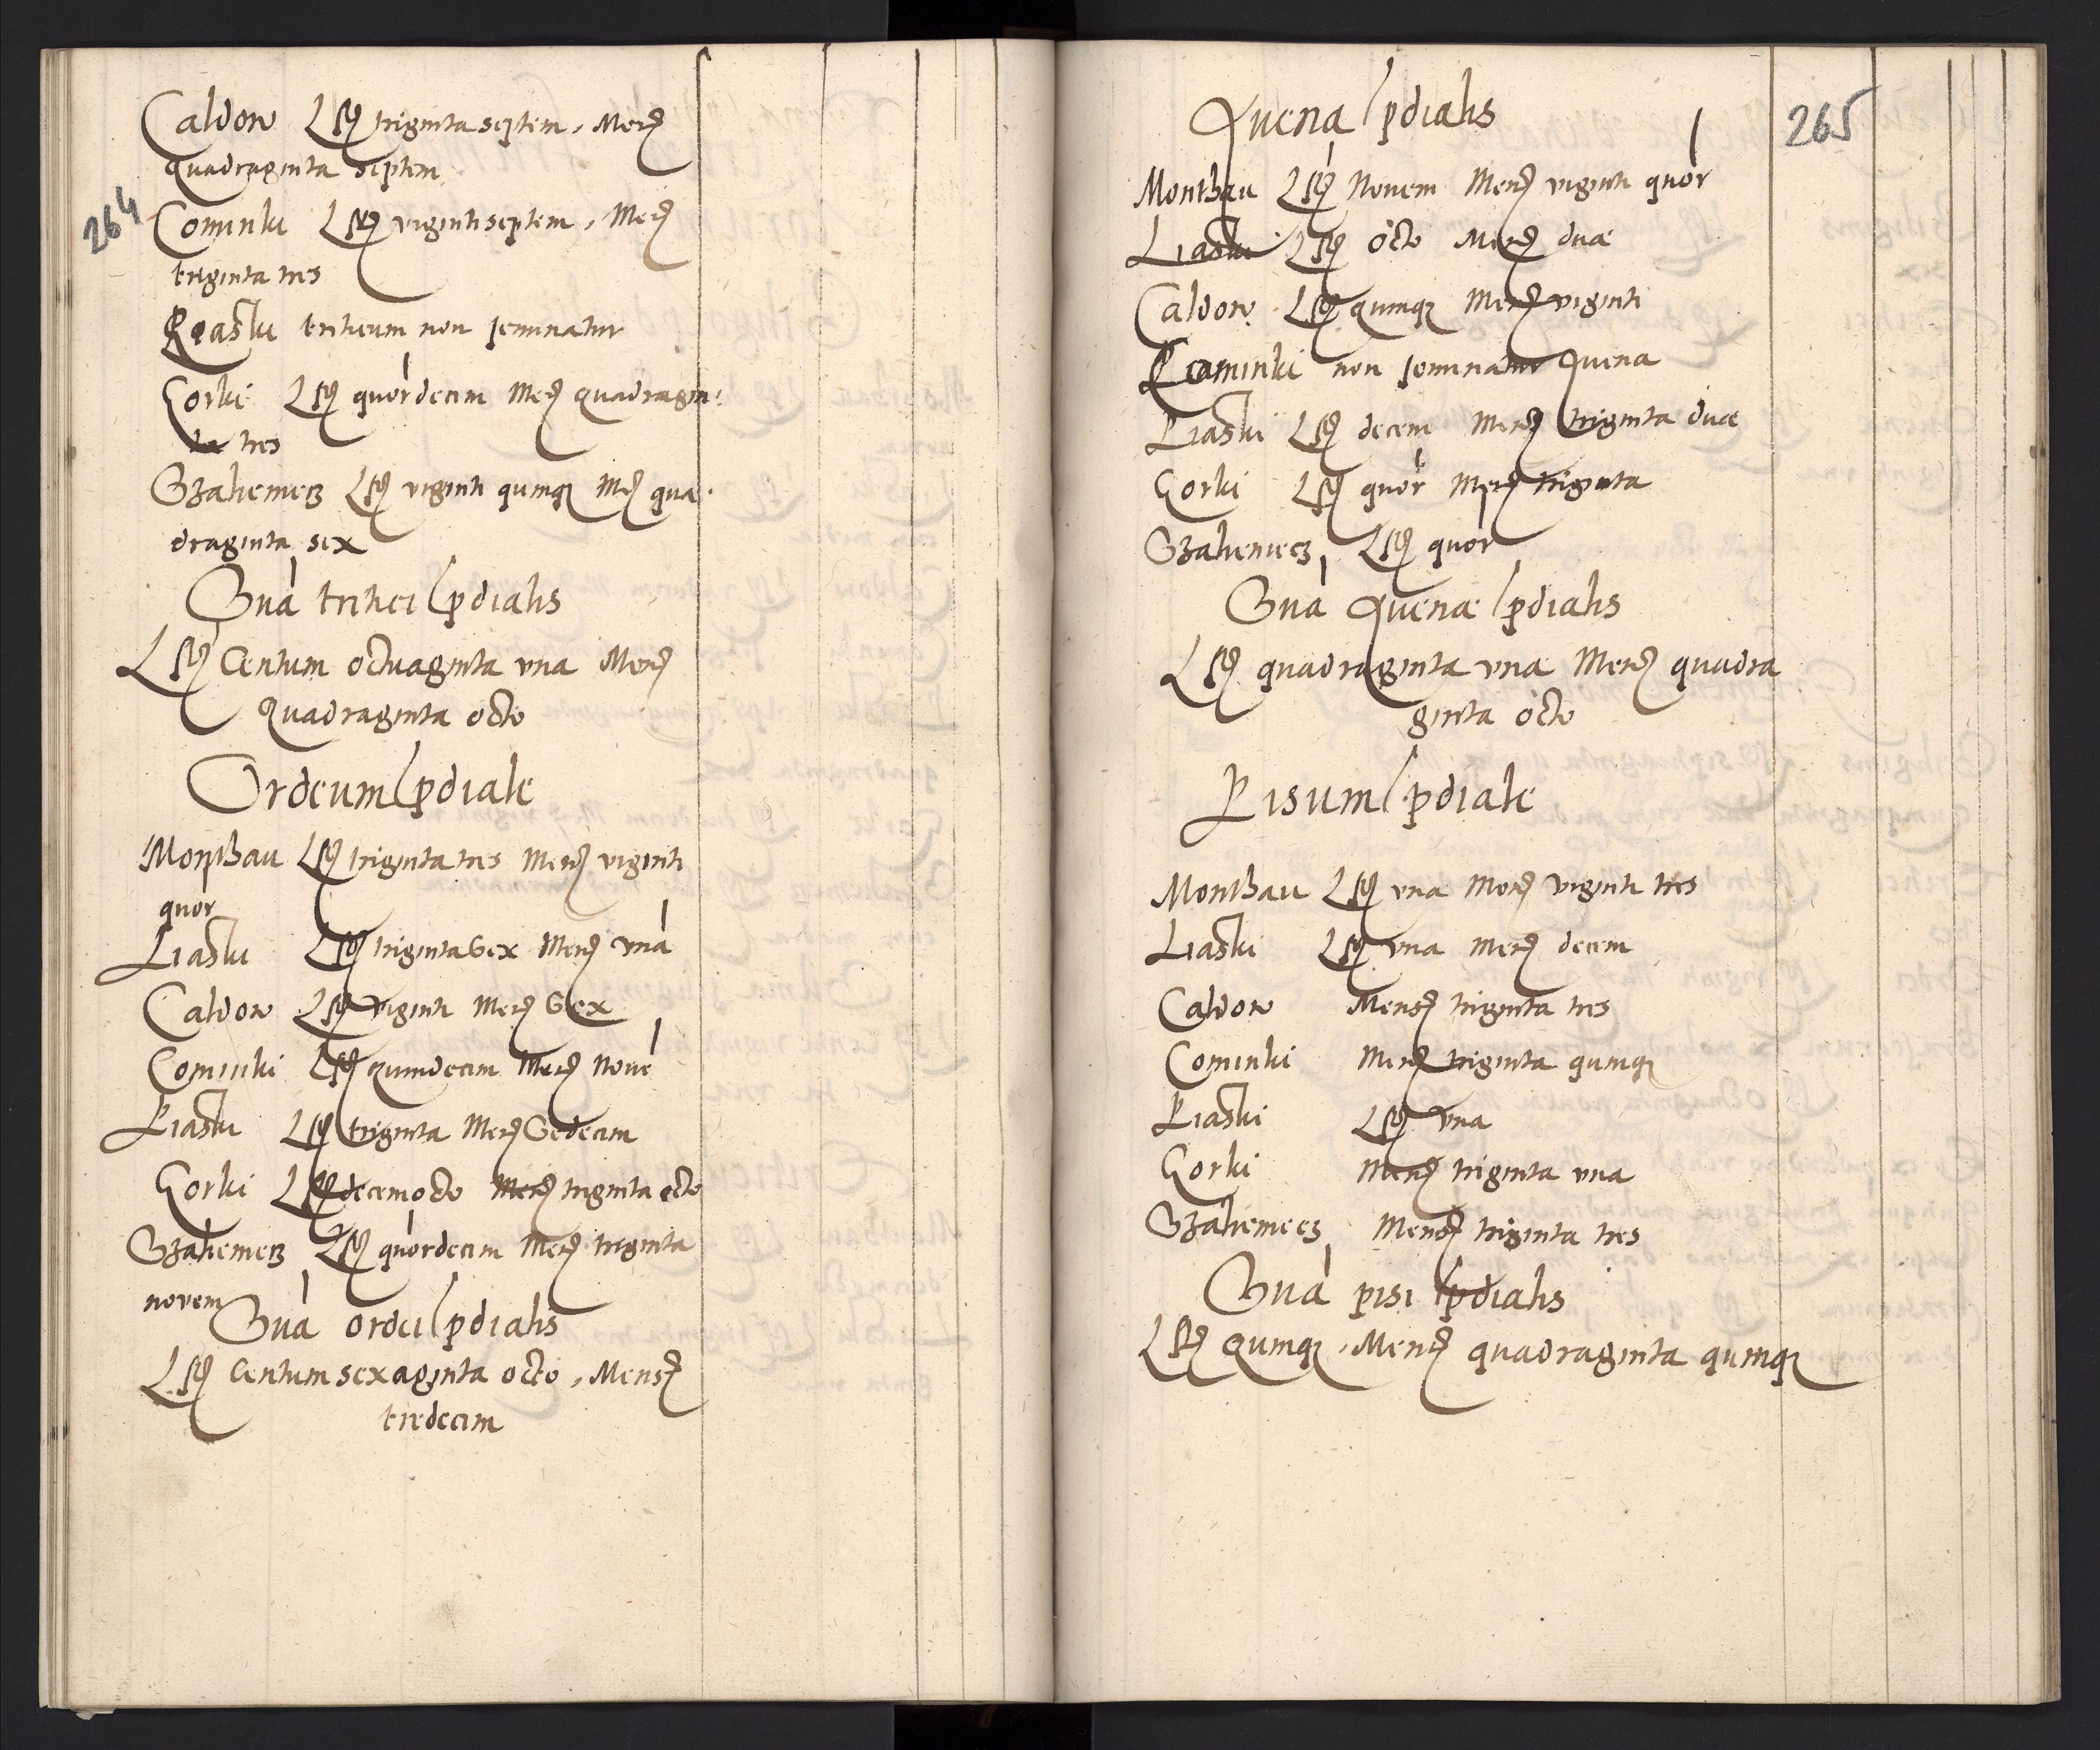 264
Caldow Lſt trigintaseptem, Mens
quadraginta septem
Cominki Lſt vigintiseptem, Mens
triginta tres
Piaski triticum non seminatur
Gorki Lſt quordecim Mens quadragin:
ta tres
Gzalieniecz Lſt viginti quinque Mens qua:
draginta sex
Sua tritici pdialis
Lſt Centum octuaginta vna Mens
Quadraginta octo
Ordeum pdiale
Monthau Lſt triginta tres Mens viginti
quor
Liaski Lſt triginta Sex Mens vna
Caldow Lſt viginti Mens Sex
Cominki Lſt quindecim Mens Noue
Piaski Lſt triginta Mens Sedecim
Gorki Lſt decemocto Mens triginta octo
Gzalieniecz Lſt quordecim Mens triginta
novem
Sua ordei pdialis
Lſt Centum sexaginta octo, Mens
tredecim
265
Auena pdialis
Monthau Lſt Nouem Mens viginti quor
Liaski Lſt octo Mens duae
Caldow Lſt quinque Mens viginti
Caminki non seminatur Auena
Piaski Lſt decem Mens triginta duae
Gorki Lſt quor Mens triginta
Gzalieniecz, Lſt quor
Sua Auenae pdialis
Lſt quadraginta vna Mens quadra
ginta octo
Pisum pdiale
Monthau Lſt vna Mens viginti tres
Liaski Lſt vna Mens decem
Caldow Mens triginta tres
Cominki Mens triginta quinque
Piaski Lſt vna
Gorki Mens triginta vna
Gzalieniecz Mens triginta tres
Sua pisi pdialis
Lſt Quinque, Mens quadraginta quinque